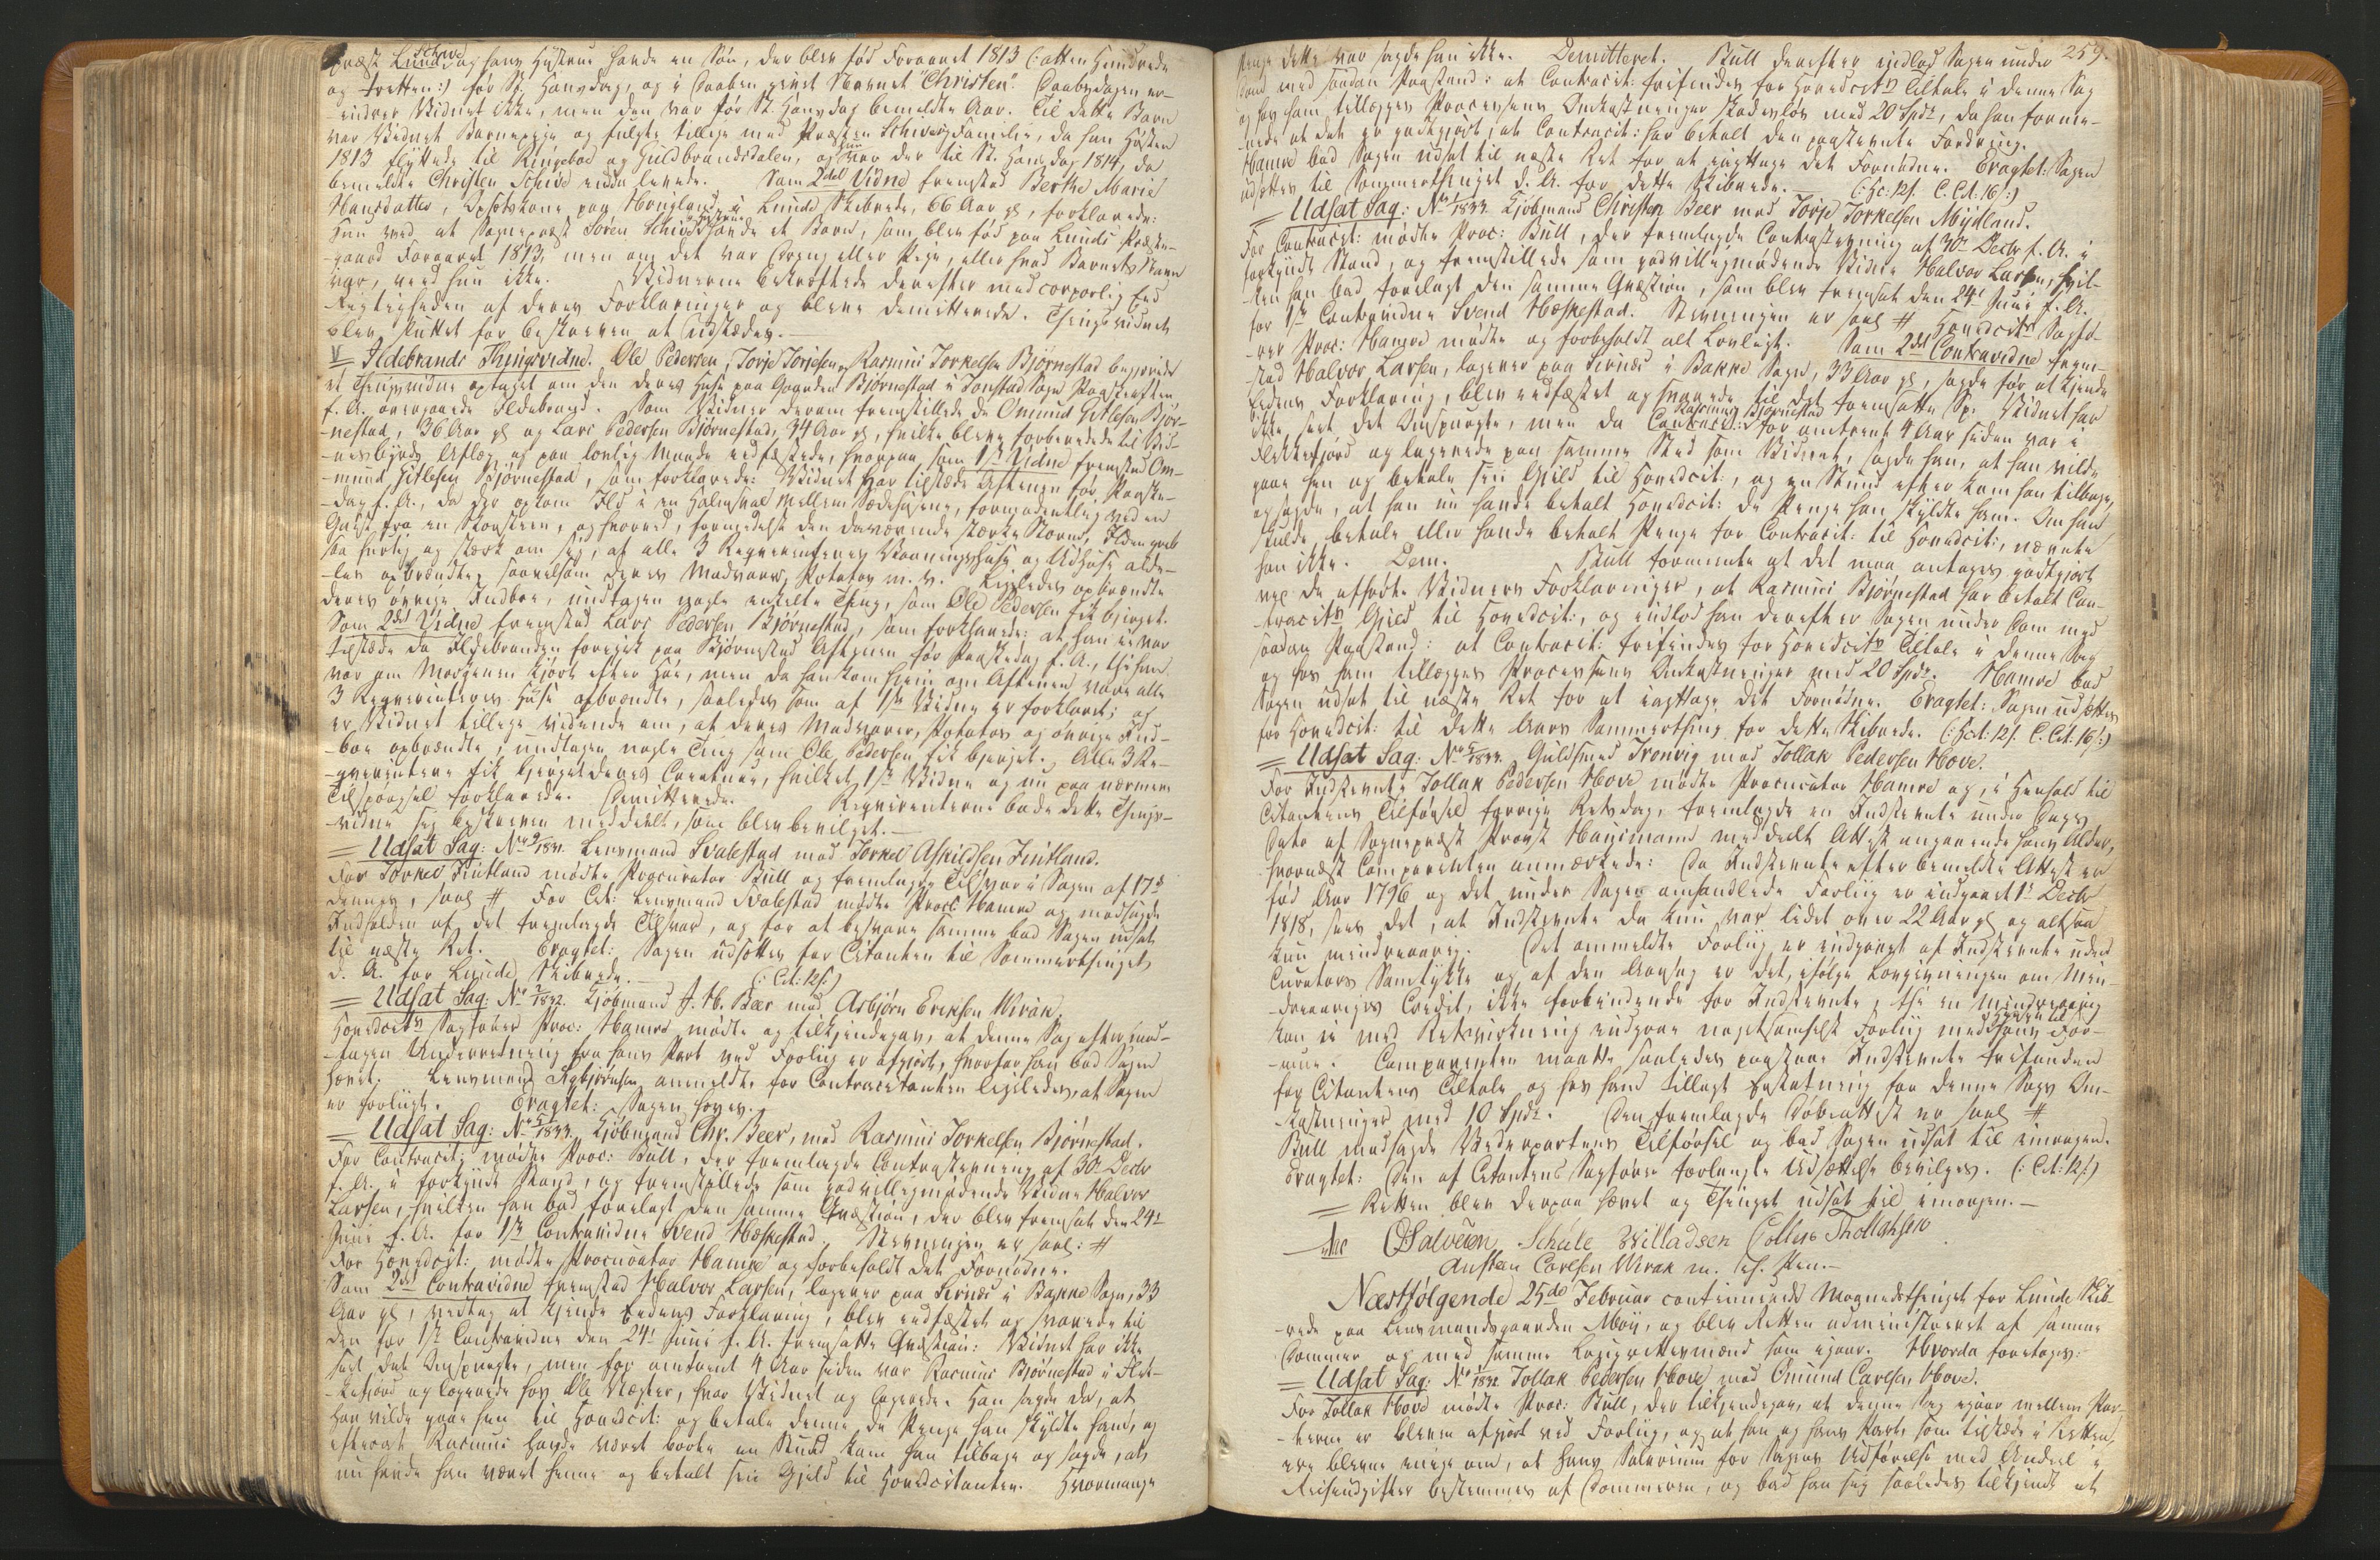 præst Lunds Schive og hans Hustrue havde en Søn, der blev fød Foraaret 1813 (: atten Hundrede
og tretten:) før St. Hansdag, og i Daaben givet Navnet "Christen". Daabsdagen er-
-indrer Vidnet ikke, men den var før St. Hansdag bemeldte Aar. Til dette Barn
var Vidnet Barnepige og fulgte tillige med Præsten Schives Familie, da han Høsten
1813 flyttede til Ringeboe og Guldbrandsdalen, og hun var der til St. Hansdag 1814, da
bemeldte Christen Schive endnu levede. Som 2det Vidne fremstod Berthe Marie
Hansdatter, Opsidderkone paa Haugland i Lunde Skibrede, 66 Aar gl, forklarede:
hun veed, at Sognepræst Søren Schive og Hustrue havde et Barn, som blev fød paa Lunds Præste-
-gaard Foraaret 1813, men om det var Dreng eller Pige, eller hvad Barnets Navn
var, veed hun ikke. Vidnerne bekræftede derefter med corporlig Eed
Rigtigheden af deres Forklaringer og bleve demitterede. Thingsvidnet
blev sluttet for beskreven at udstædes.
V Ildebrands Thingsvidne. Ole Pedersen, Torje Torjesen og Rasmus Torkelsen Bjørnestad begjerede
et Thingsvidne optaget om den deres Huse paa Gaarden Bjørnestad i Tonstad Sogn Paaskeaften
f. A. overgaaede Ildebrand. Som Vidner derom fremstillede de Omund Gitlesen Bjør-
-nestad, 36 Aar gl og Lars Pedersen Bjørnestad, 34 Aar gl, hvilke bleve forberedede til Vid-
-nesbyrds Aflæg og paa lovlig Maade eedfæstede, hvorpaa som 1ste Vidne fremstod Om-
-mund Gitlesen Bjørnestad, som forklarede: Vidnet var tilstæde Aftenen før Paaske-
-dag f. A., da der opkom Ild i en Halmstal mellem Sædehusene, formodentlig ved en
Gnist fra en Skorsteen, og hvorved, formedelst den daværende stærke Storm, Ilden greb
saa hurtig og stærk om sig, at alle 3 Requirenternes Vaaningshuse og Udhuse alde-
-les opbrændte, saavelsom deres Madvarer, Potatos m. v. Ligeledes opbrændte
deres øvrige Indboe, undtagen nogle enkelte Ting, som Ole Pedersen fik bjerget.
Som 2det Vidne fremstod Lars Pedersen Bjørnestad, som forklarede: at han ei var
tilstæde da Ildebranden foregik paa Bjørnestad Aftenen før Paaskedag f. A., thi han
var om Morgenen kjørt efter Høe, men da han kom hjem om Aftenen vare alle
3 Requirenternes Huse opbrændte, saaledes som af 1ste Vidne er forklaret; og
er Vidnet tillige vidende om, at deres Madvarer, Potatos og øvrige Ind-
-boe opbrændte, undtagen nogle Ting som Ole Pedersen fik bjerget. Alle 3 Re-
-quirenterne fik bjerget deres Creature, hvilket 1ste Vidne og nu paa nærmere
Tilspørgsel forklarede. Demitterede. Requirenterne bade dette Things-
-vidne sig beskreven meddeelt, som blev bevilget.
= Udsat Sag: No 9/1831. Lensmand Svalestad mod Torkel Askildsen Fintland.
For Torkel Fintland mødte Procurator Bull og fremlagde Tilsvar i Sagen af 17de
dennes, saal # For Cit: Lensmand Svalestad mødte Proc: Hamre og modsagde
Indholden af det fremlagde Tilsvar, og for at besvare samme bad Sagen udsat
til næste Ret. Eragtet: Sagen udsættes for Citanten til Sommerthinget
d. A. for Lunde Skibrede. (: Cit: 12 s:)
= Udsat Sag: No 2/1832. Kjøbmand J. H. Beer mod Asbjørn Eriksen Wirak.
Hovedcits Sagfører Proc: Hamre mødte og tilkjendegav, at denne Sag efter mod-
-tagen Underretning fra hans Part ved Forliig er afgjort, hvorfor han bad Sagen
hævet. Lensmand Asbjørnsen anmeldte for Contracitanten ligeledes, at Sagen
er forligt. Eragtet: Sagen hæves.
= Udsat Sag: No 5/1833. Kjøbmand Chr. Beer, mod Rasmus Torkelsen Bjørnestad.
For Contracit: mødte Proc: Bull, der fremlagde Contrastevning af 30te Decbr
f. A. i forkyndt Stand, og fremstillede som godvilligmødende Vidne Halvor
Larsen, hvilken han bad forelagt den samme Qvæstion, der blev fremsat den 24de
Juni f. A. for 1ste Contravidne Svend Hæskestad. Stevningen er saal: #
For Hovedcit: mødte Procurator Hamre og forbeholdt det Fornødne.
Som 2det Contravidne fremstod Halvor Larsen, logerer paa Sirnæs i Bakke Sogn, 33
Aar gl, vedtog at kjende Eedens Forklaring, blev eedfæstet og svarede til
den for 1ste Contravidne den 24de Juni f. A. fremsatte Qvæstion: Vidnet har ikke
hørt det Omspurgte, men for omtrent 4 Aar siden var Rasmus Bjørnestad i Flek-
-kefjord og logerede hos Ole Næsker, hvor Vidnet og logerede. Han sagde da, at
han vilde gaae hen til Hovedcit: og betale denne de Penge han skyldte ham, og
efterat Rasmus havde været borte en Stund kom han tilbage og sagde, at
nu havde han været henne og betalt sin Gjeld til Hovedcitanten. Hvormange
259.
Penge dette var sagde han ikke. Demitteret. Bull derefter indlod Sagen under
Dom med saadan Paastand: at Contracit: frifindes for Hovedcits Tiltale i denne Sag
og hos ham tillægges Processens Omkostninger skadesløs med 20 Spdr, da han forme-
-nede at det er godtgjort, at Contracit: har betalt den paastævnte Fordring.
Hamre bad Sagen udsat til næste Ret for at iagttage det Fornødne. Eragtet: Sagen
udsættes til Sommerthinget d. A. for dette Skibrede. (: Hc: 12 s. C. Cit. 16 s:)
= Udsat Sag: No 1/1833. Kjøbmand Christen Beer mod Torje Torkelsen Mydland.
For Contracit: mødte Proc: Bull, der fremlagde Contrastevning af 30te Decbr f. A. i
forkyndt Stand, og fremstillede som godvilligmødende Vidne Halvor Larsen, hvil-
-ken han bad forelagt den samme Qvæstion, som blev fremsat den 24de Juni f. A.
for 1ste Contravidne Svend Hæskestad. Stevningen er saal # Hovedcits Sagfø-
-rer Proc: Hamre mødte og forbeholdt alt Lovligt. Som 2det Contravidne frem-
-stod Halvor Larsen, logerer paa Sirnæs i Bakke Sogn, 33 Aar gl, sagde sig at kjende
Eedens Forklaring, blev eedfæstet og svarede til det fremsatte Sp: Vidnet har
ikke hørt det Omspurgte, men da Contracit: Rasmus Bjørnestad for omtrent 4 Aar siden var i
Flekkefjord og logerede paa samme Sted som Vidnet, sagde han, at han vilde
gaae hen og betale sin Gjeld til Hovedcit:, og en Stund efter kom han tilbage,
og sagde, at han nu havde betalt Hovedcit: de Penge han skyldte ham. Om han
skulde betale eller havde betalt Penge for Contracit: til Hovedcit:, nævnte
han ikke. Dem. Bull formeente at det maa antages godtgjort
ved de afhørte Vidners Forklaringer, at Rasmus Bjørnestad har betalt Con-
-tracits Gjeld til Hovedcit:, og indlod han derefter Sagen under Dom med
saadan Paastand: at Contracit: frifindes for Hovedcits Tiltale i denne Sag
og hos ham tillægges Processens Omkostninger med 20 Spdr. Hamre bad
Sagen udsat til næste Ret for at iagttage det Fornødne. Eragtet: Sagen udsættes
for Hovedcit: til dette Aars Sommerthing for dette Skibrede. (: Hcit: 12 s. C. Cit. 16 s:)
= Udsat Sag: No 5/1833. Guldsmed Tronvig mod Tollak Pedersen Hove.
For Indstevnte Tollak Pedersen Hove mødte Procurator Hamre og, i Henhold til
Citantens Tilførsel forrige Retsdag, fremlagde en Indstevnte under Dags
Dato af Sognepræst Provst Hansmann meddeelt Attest angaaende hans Alder,
hvornæst Comparenten anmærkede: Da Indstevnte efter bemeldte Attest er
fød Aar 1796 og det under Sagen omhandlede Forliig er indgaaet 1ste Decbr
1818, sees det, at Indstevnte da kun var lidet over 22 Aar gl og altsaa
kun mindreaarig. Det ommeldte Forliig er indgaaet af Indstevnte uden
Curators Samtykke og af den Aarsag er det, ifølge Lovgivningen om Min-
-dreaariges Credit, ikke forbindende for Indstevnte, thi en Mindreaarig
kan ei med Retsvirkning indgaae nogetsomhelst Forliig med Hensyn til hans For-
-mue. Comparenten maatte saaledes paastaae Indstevnte frifunden
for Citantens Tiltale og hos ham tillagt Erstatning for denne Sags Om-
-kostninger med 10 Spdr. Den fremlagde Døbeattest er saal #
Bull modsagde Vederpartens Tilførsel og bad Sagen udsat til imorgen.
Eragtet: Den af Citantens Sagfører forlangte Udsættelse bevilges. (: Cit: 12 s:)
= Retten blev derpaa hævet og Thinget udsat til imorgen.
OSalvesen Schiele Willadsen Tollev Thollaksen
Austen Carlsen Wirak m. f. Pen.
Næstfølgende 25de Februar continuerede Maanedsthinget for Lunde Skib-
-rede paa Lensmandsgaarden Moy, og blev Retten administreret af samme
Dommer og med samme Laugrettesmænd som igaar. Hvorda foretoges:
= Udsat Sag: No 1/1832 Tollak Pedersen Hove mod Omund Carlsen Hove.
For Tollak Hove mødte Proc: Bull, der tilkjendegav, at denne Sag igaar mellem Par-
-terne er bleven afgjort ved Forliig, og at han og hans Part, som tilstæde i Retten,
ere blevne enige om, at hans Salarium for Sagens Udførelse med Andeel i
Reiseudgifter bestemmes af Dommeren, og bad han sig saaledes tilkjendt et